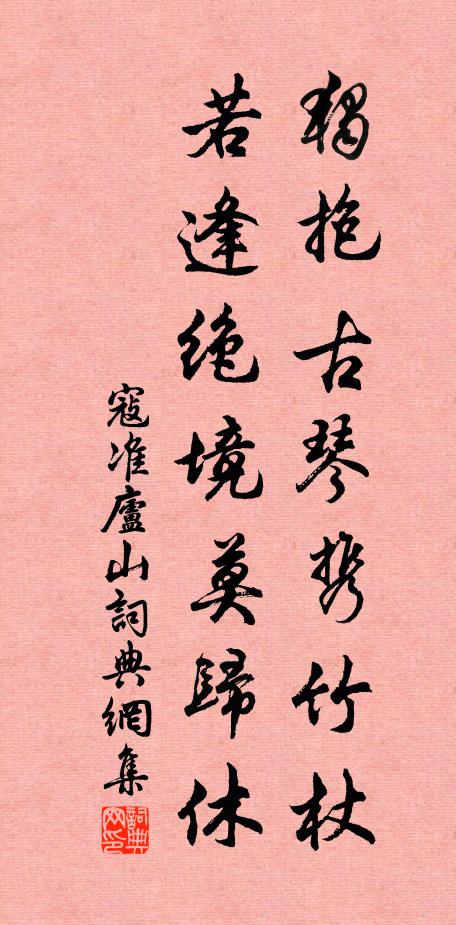 獨抱古琴攜竹杖
若逢絶境莫歸休
寇准廬山詞典網集
詞典网印